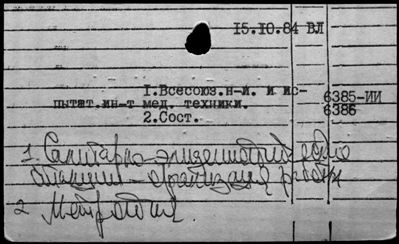 15.10.84 ВЛ
1.Всесоюз.н-и. и ис-
пытат.ин-т мед. техники.
2.Сост.
6385-ИИ
6386
1. Санитарно-эпидемиологические
станции - организация работы
2 Метрология.